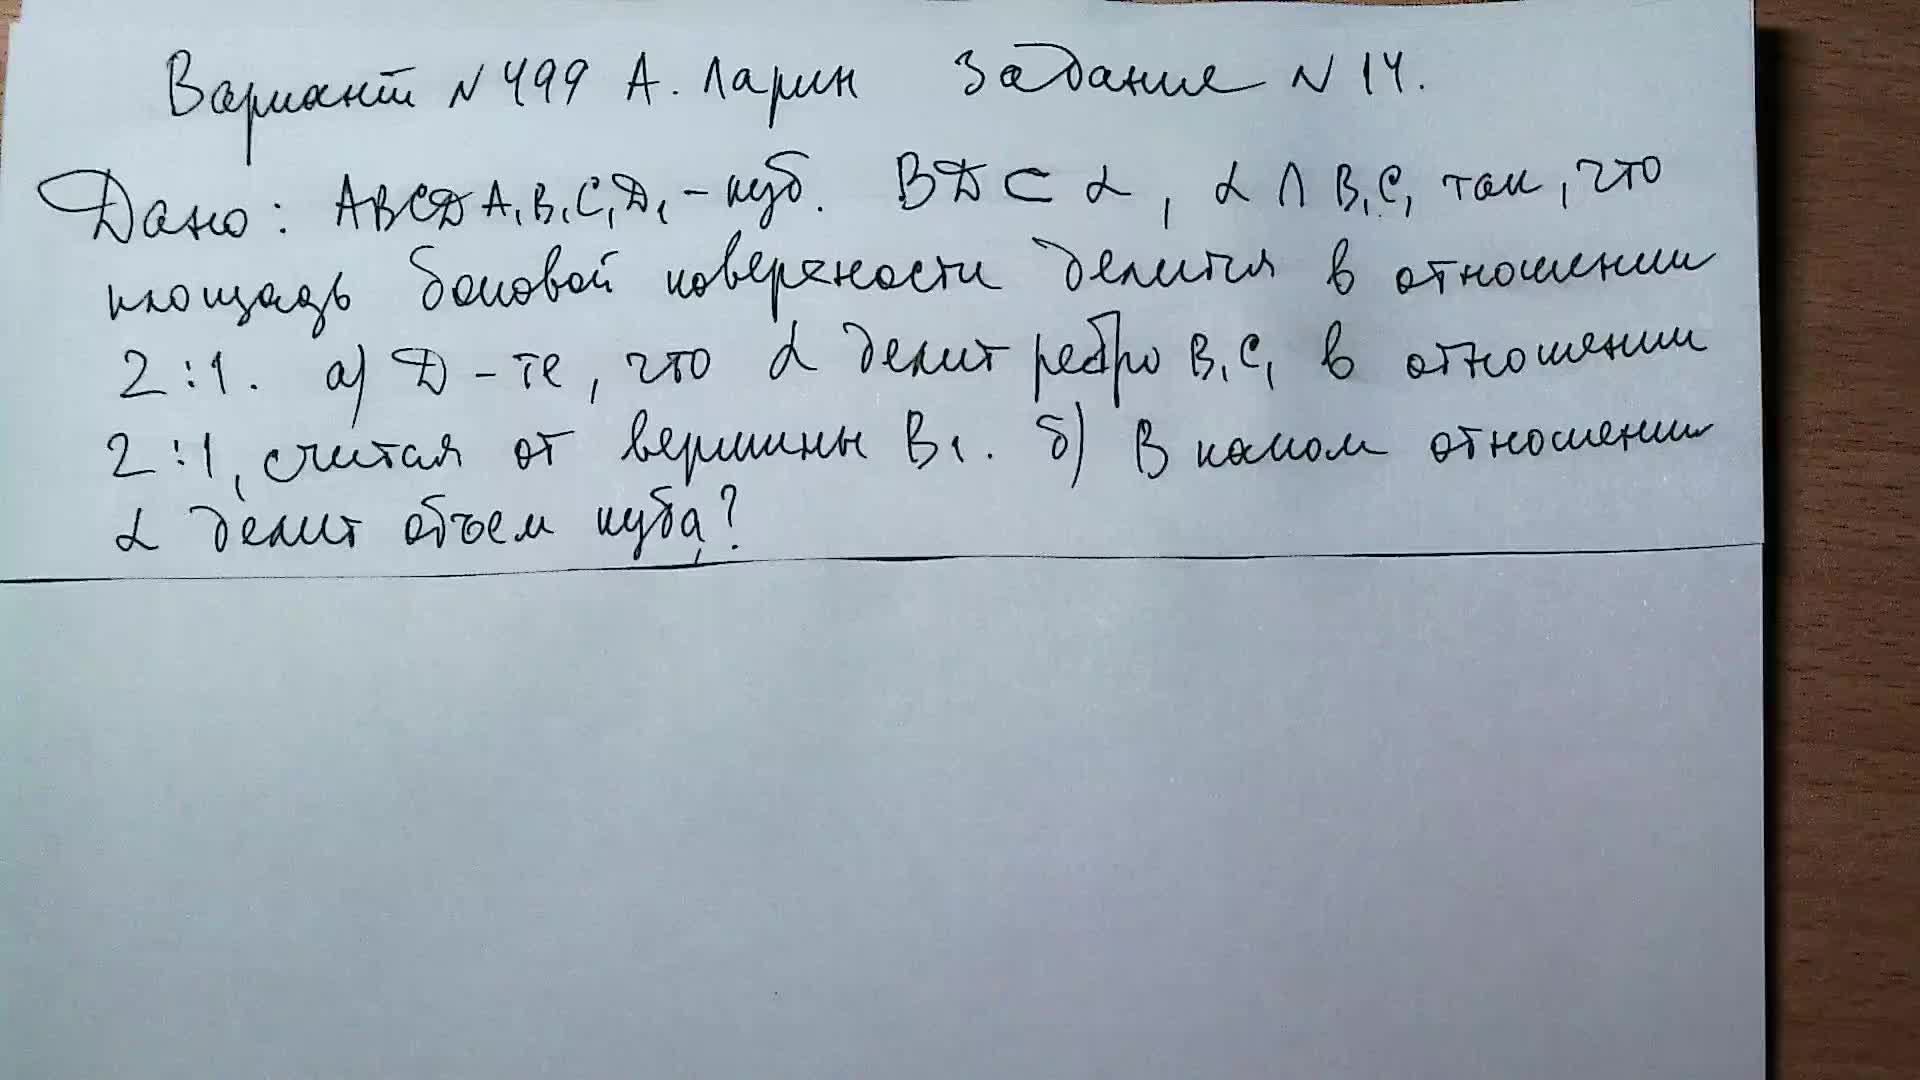 Вариант N 499 А. Ларин Задание N 14.
Дано: ABCDA₁B₁C₁D₁ - куб. BD ⊂ α, α ∩ B₁C₁ так, что
площадь боковой поверхности делится в отношении
2:1. а) Д-те, что α делит ребро B₁C₁ в отношении
2:1, считая от вершины B₁. б) В каком отношении
α делит объем куба?